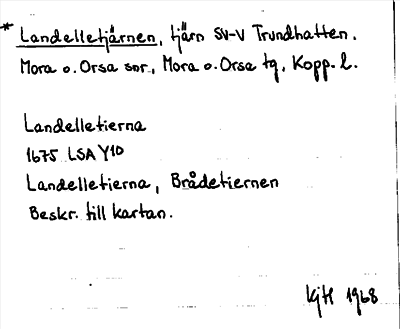 * Landelletjärnen, tjärn SV-V Trundhatten.
Mora o. Orsa snr., Mora o. Orsa tg, Kopp. l.
Landelletierna
1675 LSA Y10
Landelletierna, Brådetiernen
Beskr. till kartan.
KjH 1968